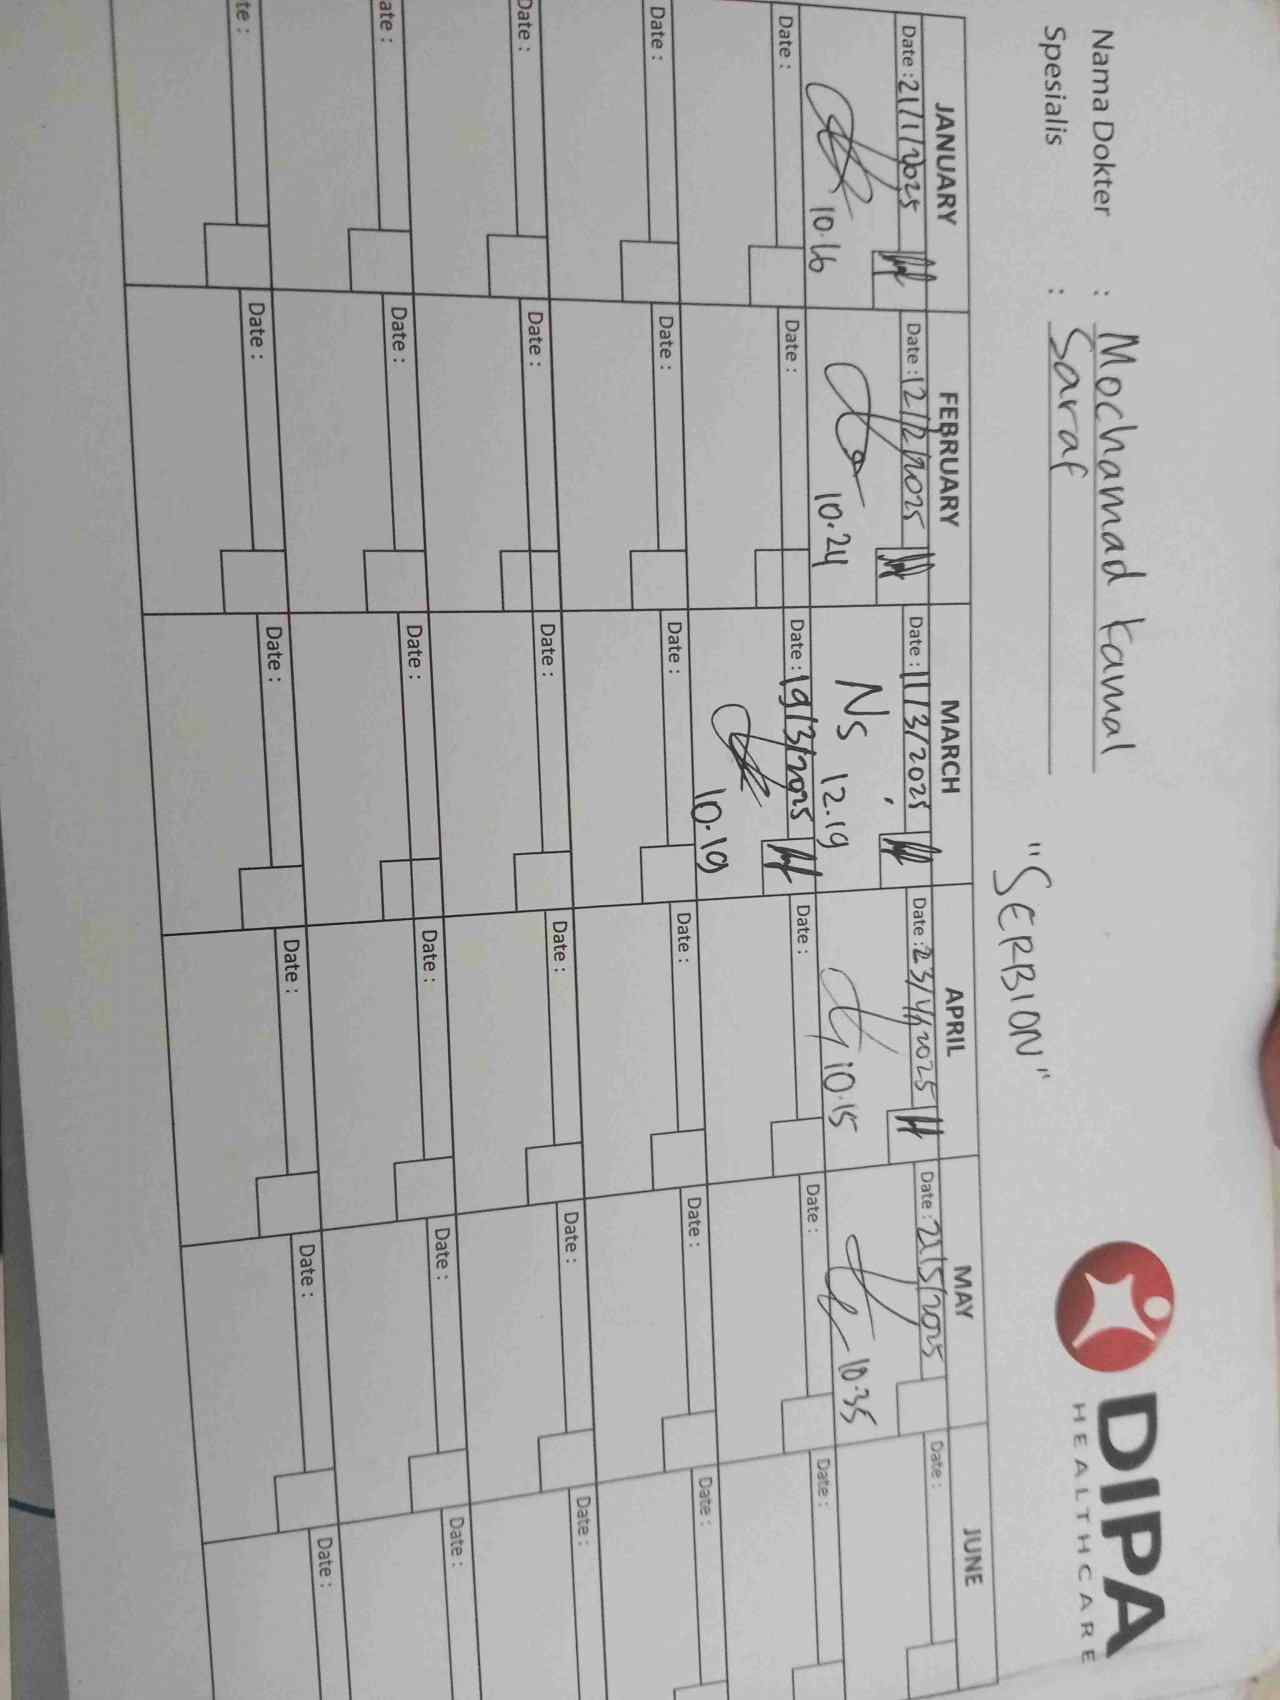 Nama Dokter : Mochamad Kamal
Spesialis : Saraf
"SERBION"
DIPA
HEALTHCARE
JANUARY FEBRUARY MARCH APRIL MAY JUNE
Date : 21/1/2025 Date : 12/2/2025 Date : 11/3/2025 Date : 23/4/2025 Date : 21/5/2025 Date :
10.16 10.24 Ns 12.19 10.15 10.35
Date : Date : Date : 19/3/2025 Date : Date : Date :
10.19
Date : Date : Date : Date : Date : Date :
Date : Date : Date : Date : Date : Date :
ate : Date : Date : Date : Date : Date :
te : Date : Date : Date : Date : Date :